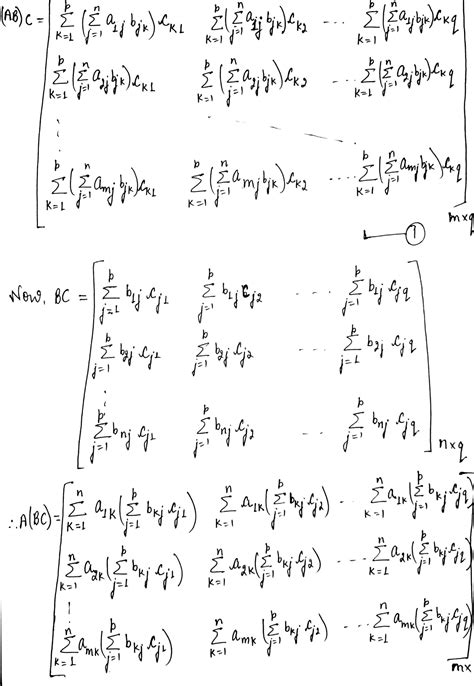 (AB)C = [ ∑_{k=1}^{p} (∑_{j=1}^{n} a_{1j} b_{jk}) c_{k1}   ∑_{k=1}^{p} (∑_{j=1}^{n} a_{1j} b_{jk}) c_{k2}   ...   ∑_{k=1}^{p} (∑_{j=1}^{n} a_{1j} b_{jk}) c_{kq}
∑_{k=1}^{p} (∑_{j=1}^{n} a_{2j} b_{jk}) c_{k1}   ∑_{k=1}^{p} (∑_{j=1}^{n} a_{2j} b_{jk}) c_{k2}   ...   ∑_{k=1}^{p} (∑_{j=1}^{n} a_{2j} b_{jk}) c_{kq}
⋮
∑_{k=1}^{p} (∑_{j=1}^{n} a_{mj} b_{jk}) c_{k1}   ∑_{k=1}^{p} (∑_{j=1}^{n} a_{mj} b_{jk}) c_{k2}   ...   ∑_{k=1}^{p} (∑_{j=1}^{n} a_{mj} b_{jk}) c_{kq} ]_{m×q}
①
Now, BC = [ ∑_{j=1}^{p} b_{1j} . c_{j1}   ∑_{j=1}^{p} b_{1j} c_{j2}   ...   ∑_{j=1}^{p} b_{1j} . c_{jq}
∑_{j=1}^{p} b_{2j} . c_{j1}   ∑_{j=1}^{p} b_{2j} . c_{j2}   ...   ∑_{j=1}^{p} b_{2j} . c_{jq}
⋮
∑_{j=1}^{p} b_{nj} . c_{j1}   ∑_{j=1}^{p} b_{nj} . c_{j2}   ...   ∑_{j=1}^{p} b_{nj} . c_{jq} ]_{n×q}
∴ A(BC) = [ ∑_{k=1}^{n} a_{1k} (∑_{j=1}^{p} b_{kj} . c_{j1})   ∑_{k=1}^{n} a_{1k} (∑_{j=1}^{p} b_{kj} . c_{j2})   ...   ∑_{k=1}^{n} a_{1k} (∑_{j=1}^{p} b_{kj} . c_{jq})
∑_{k=1}^{n} a_{2k} (∑_{j=1}^{p} b_{kj} . c_{j1})   ∑_{k=1}^{n} a_{2k} (∑_{j=1}^{p} b_{kj} . c_{j2})   ...   ∑_{k=1}^{n} a_{2k} (∑_{j=1}^{p} b_{kj} . c_{jq})
⋮
∑_{k=1}^{n} a_{mk} (∑_{j=1}^{p} b_{kj} . c_{j1})   ∑_{k=1}^{n} a_{mk} (∑_{j=1}^{p} b_{kj} . c_{j2})   ...   ∑_{k=1}^{n} a_{mk} (∑_{j=1}^{p} b_{kj} . c_{jq}) ]_{m×}